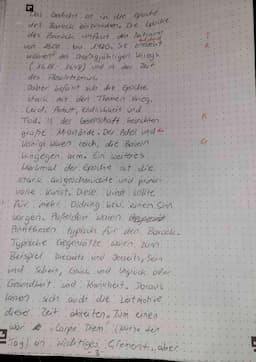 Das Gedicht ist in der Epoche
des Barock entstanden. Die Epoche
des Barock umfasst den Zeitraum
von 1600 bis 1720. Sie
während des Dreißigjährigen Kriegs
(1618-1648) und in der Zeit
des Absolutismus.
Daher befasst sich die Epoche
stark mit den Themen Krieg,
Leid, Armut, Endlichkeit und
Tod. In der Gesellschaft herrschten
große Missstände. Der Adel und
Könige waren reich, die Bauern
hingegen arm. Ein weiteres
Merkmal der Epoche ist die
stark ausgeschmückte und prunk-
volle Kunst. Diese Kunst sollte
für mehr Ordnung bzw. einen Sinn
sorgen. Außerdem waren
Antithesen typisch für den Barock.
Typische Gegensätze waren zum
Beispiel Diesseits und Jenseits, Sein
und Schein, Glück und Unglück oder
Gesundheit und Krankheit. Daraus
lassen sich auch die Leitmotive
dieser Zeit ableiten. Zum einen
war "Carpe Diem" (Nutze den
Tag) ein wichtiges Element, aber
- 3 -